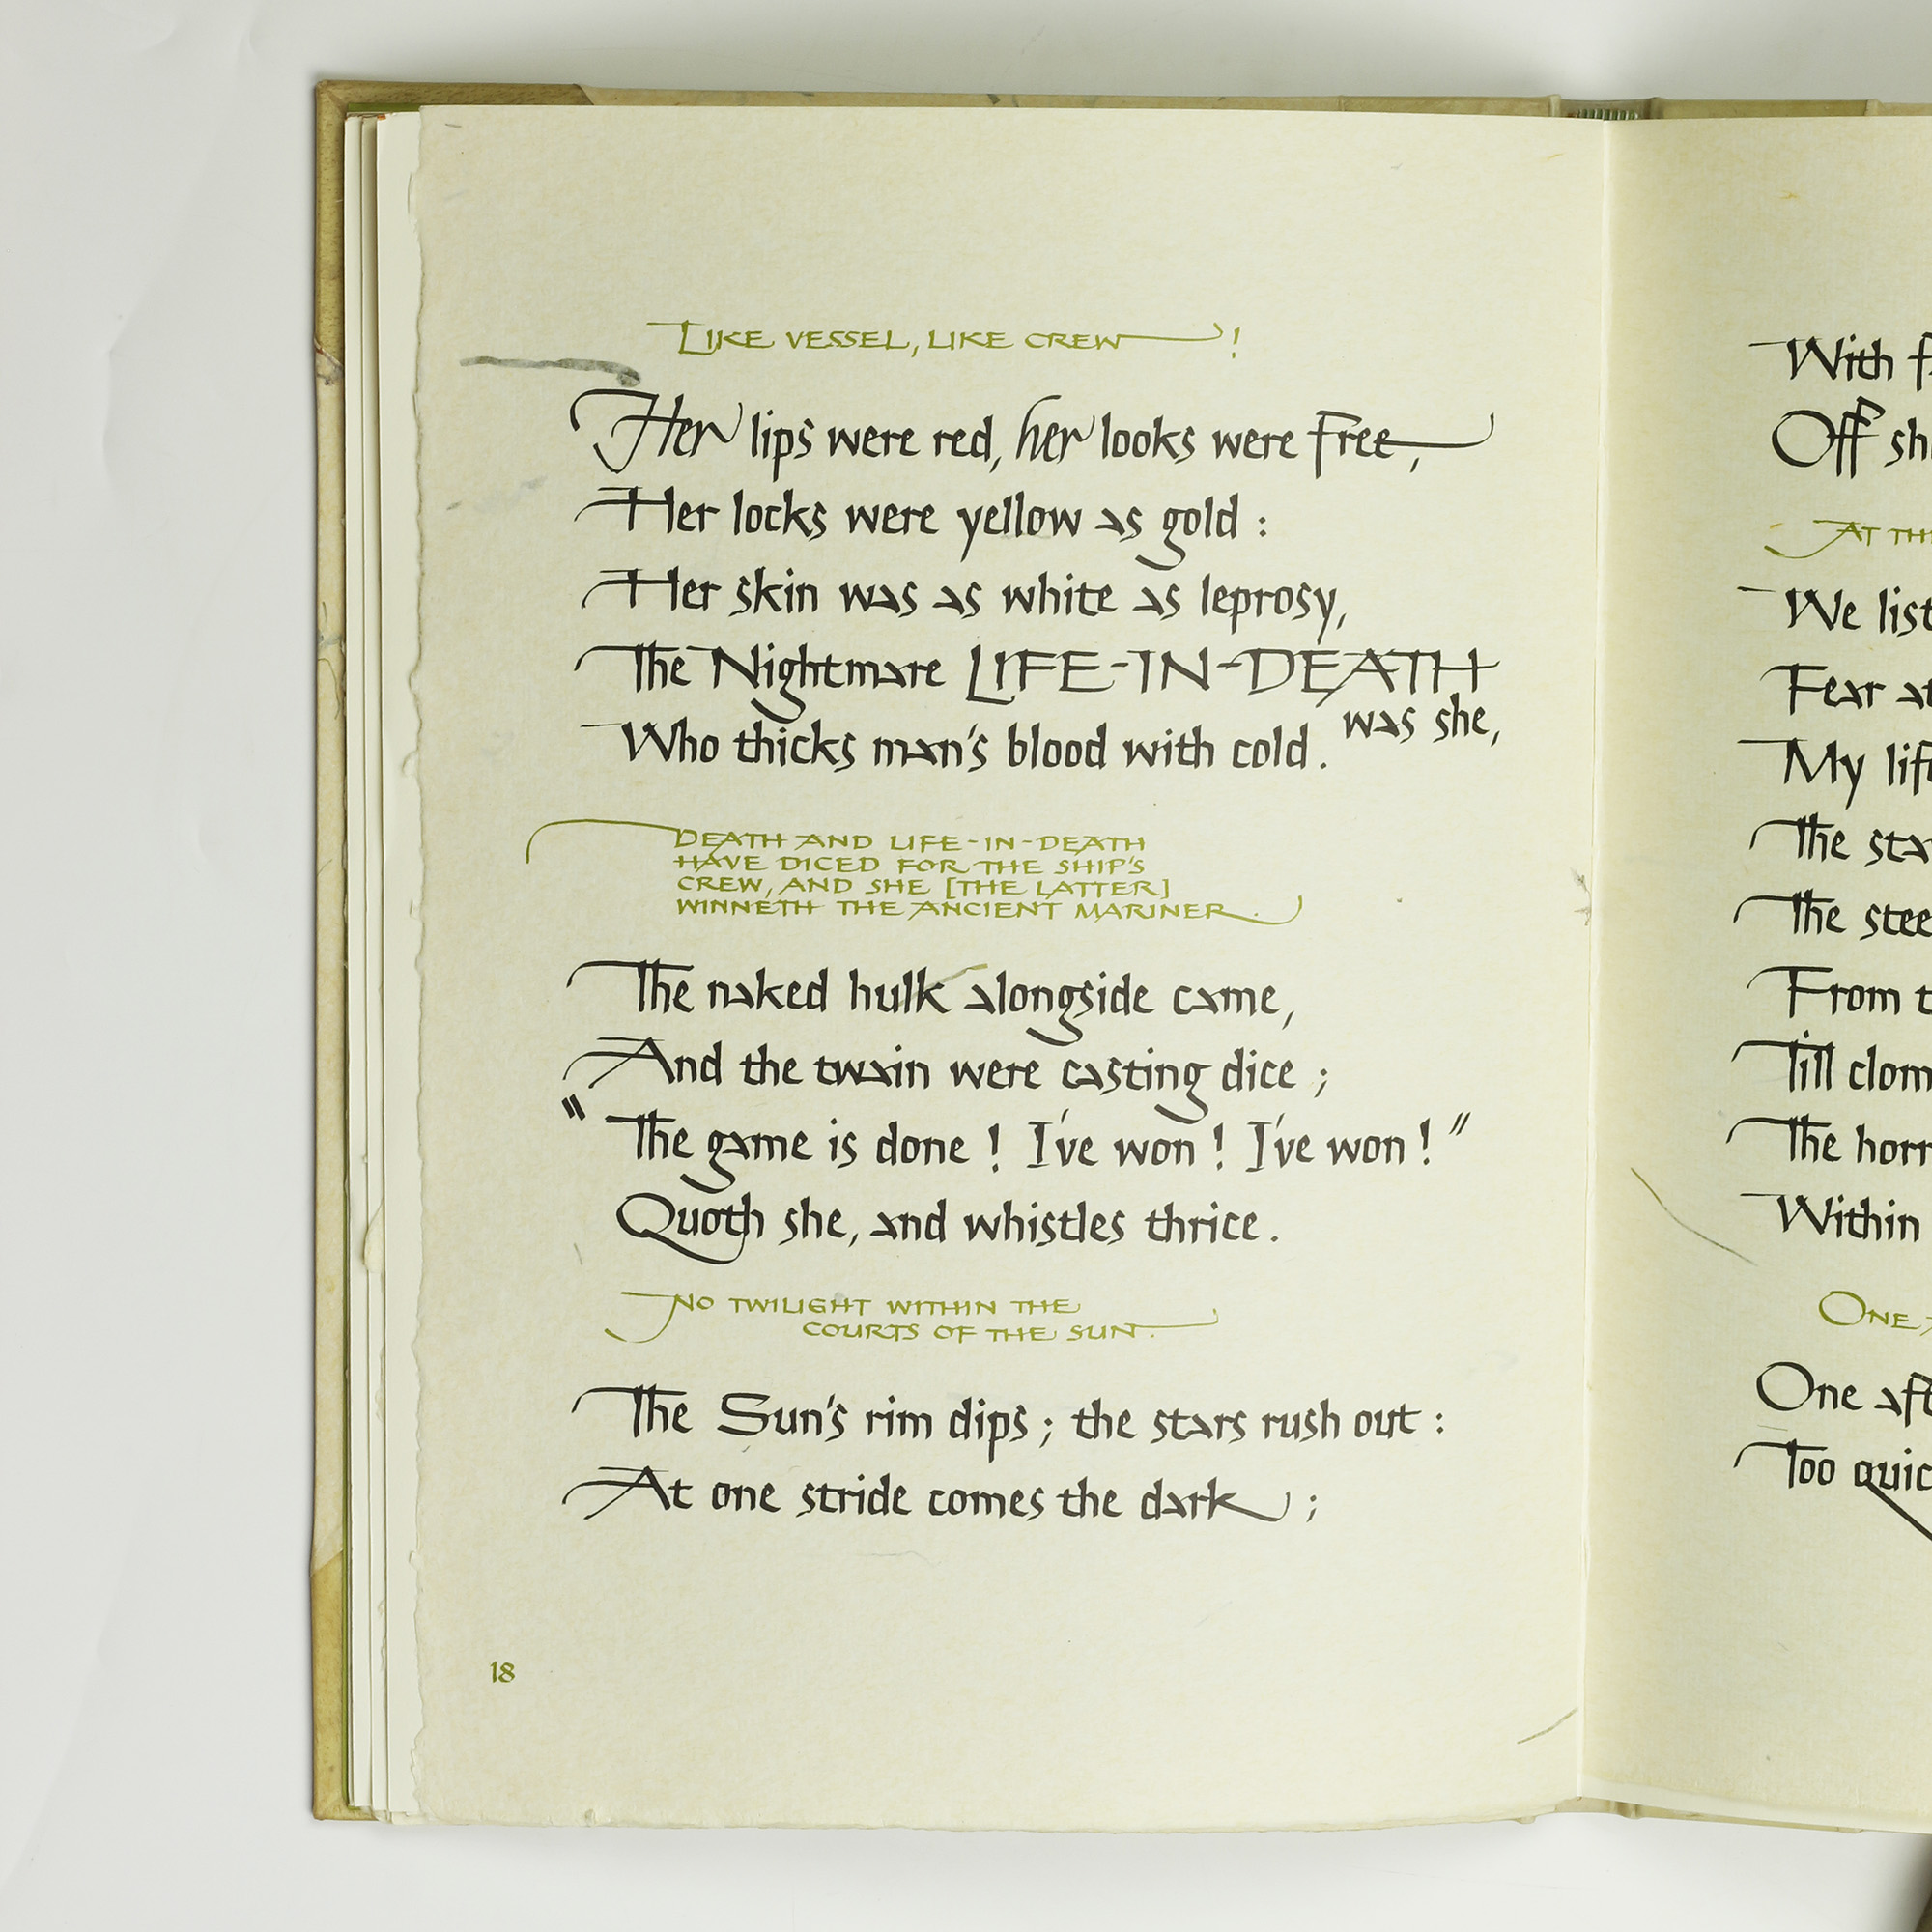 LIKE VESSEL, LIKE CREW!
Her lips were red, her looks were free,
Her locks were yellow as gold :
Her skin was as white as leprosy,
The Nightmare LIFE-IN-DEATH
was she,
Who thicks man's blood with cold.
DEATH AND LIFE-IN-DEATH
HAVE DICED FOR THE SHIP'S
CREW, AND SHE [THE LATTER]
WINNETH THE ANCIENT MARINER.
The naked hulk alongside came,
And the twain were casting dice ;
"The game is done ! I've won ! I've won !"
Quoth she, and whistles thrice.
NO TWILIGHT WITHIN THE
COURTS OF THE SUN.
The Sun's rim dips ; the stars rush out :
At one stride comes the dark ;
18
With
Off
AT
We
Fear
My
The
The
From
Till
The
Within
ONE
One
Too